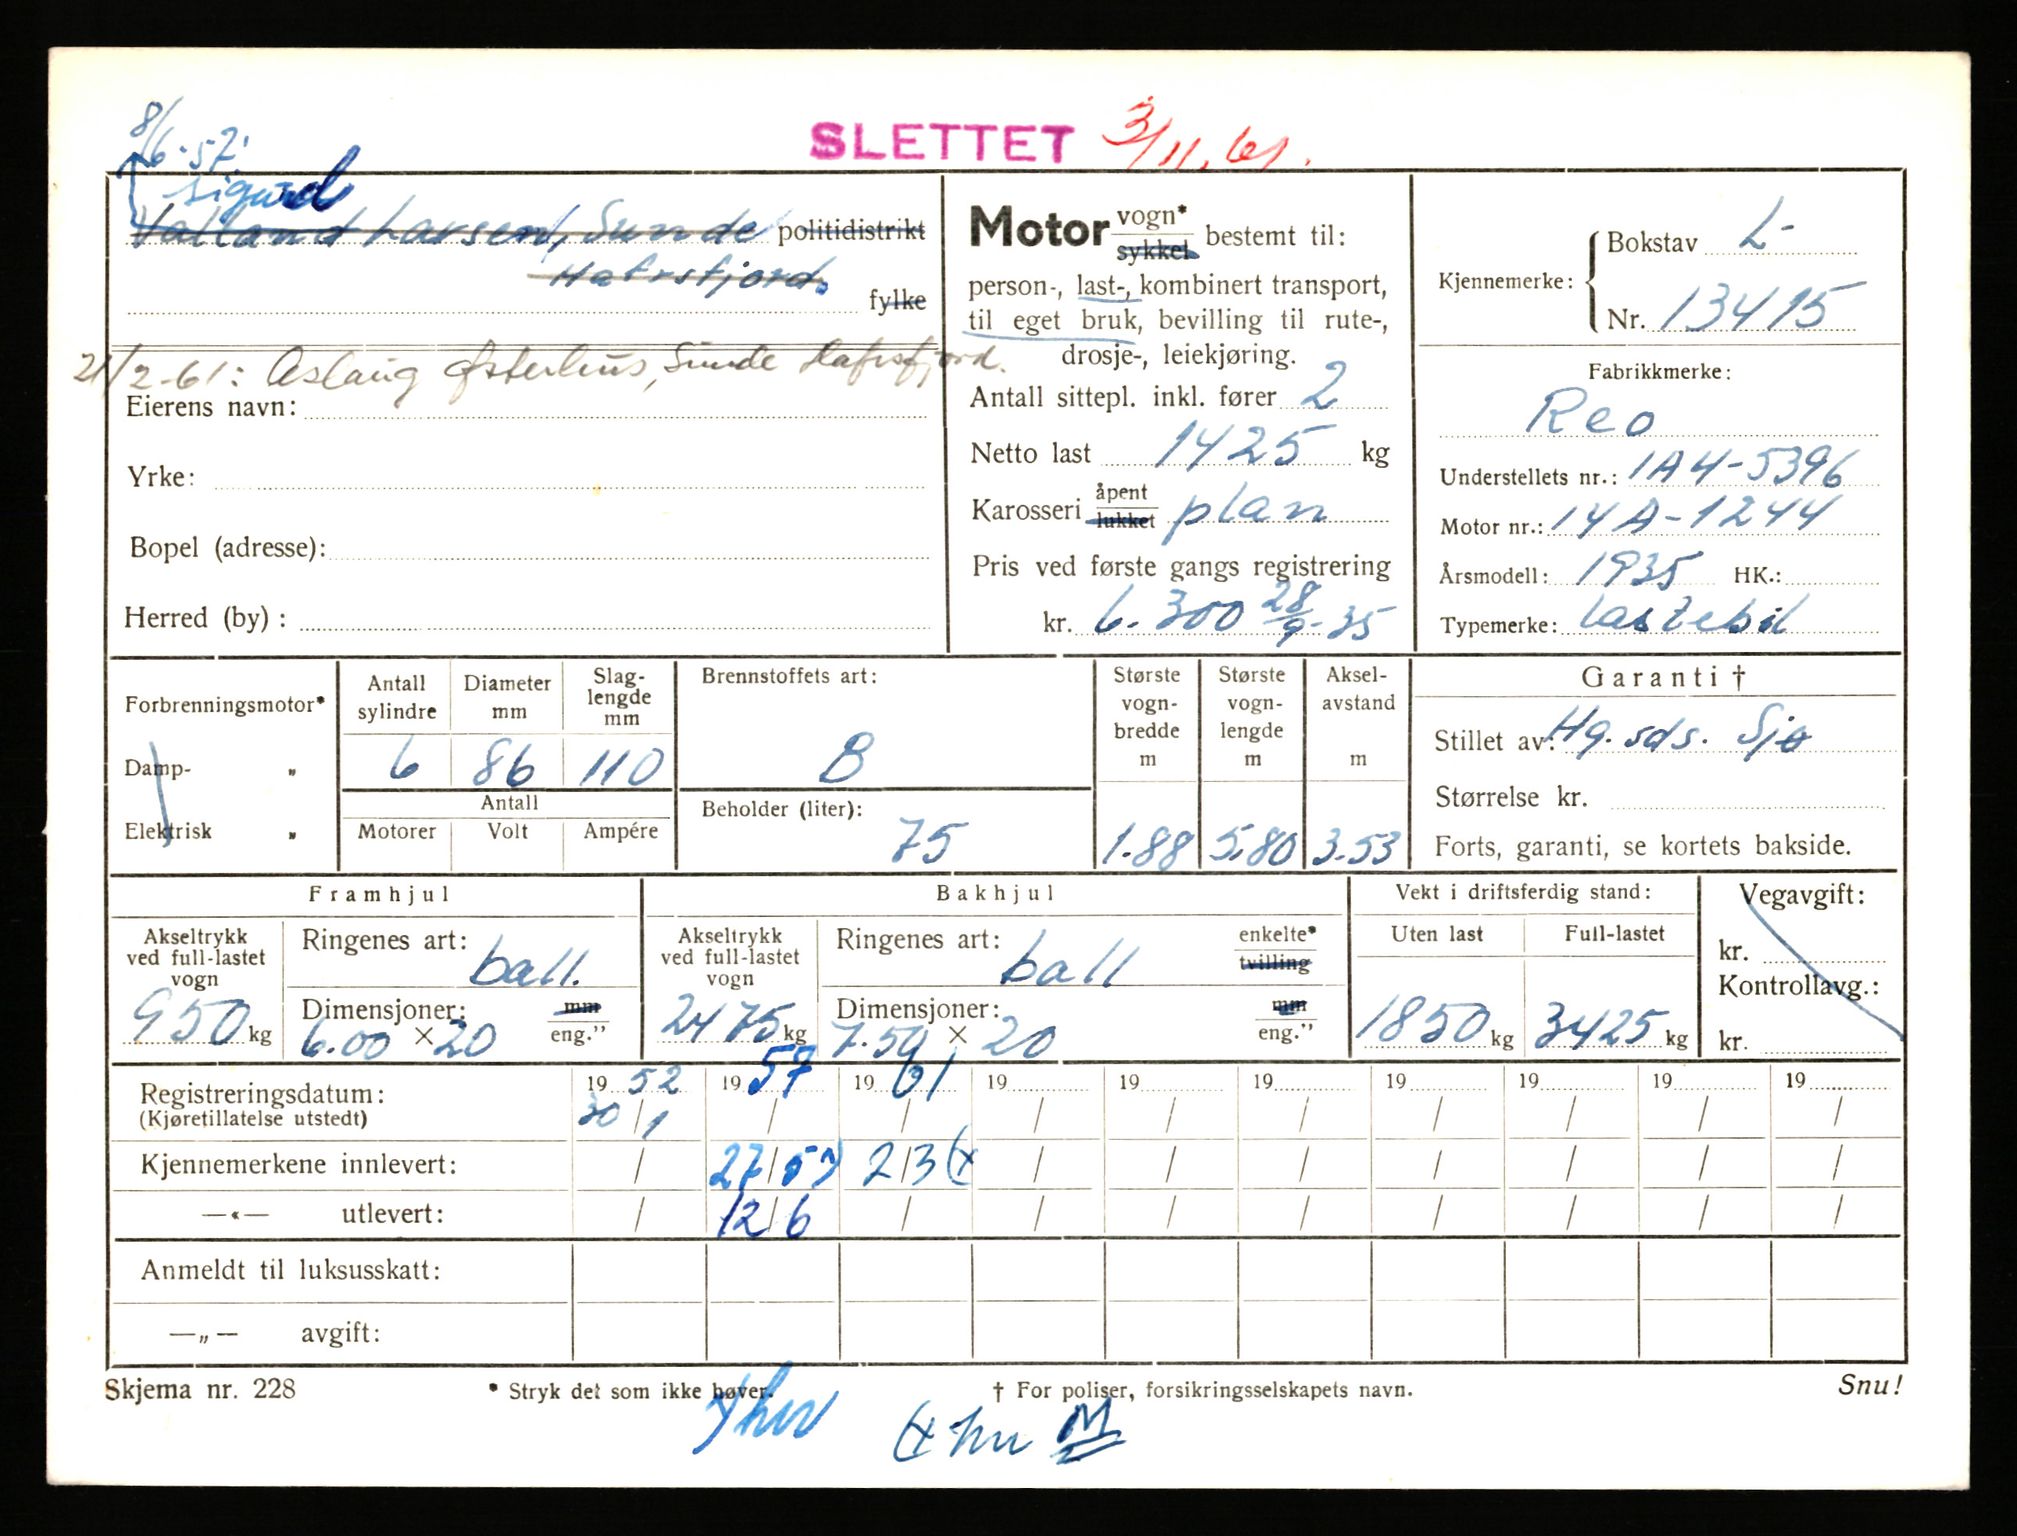 8/6-57.
SLETTET 3/11.61.
Sigurd
Valland Larsen, Sunde politidistrikt
Hafrsfjord.
fylke
21/2-61: Aslaug Østerhus, Sunde Hafrsfjord.
Eierens navn:
Yrke:
Bopel (adresse):
Herred (by) :
Motor vogn* sykkel bestemt til:
person-, last-, kombinert transport,
til eget bruk, bevilling til rute-,
drosje-, leiekjøring.
Antall sittepl. inkl. fører 2
Netto last 1425 kg
Karosseri åpent lukket plan
Pris ved første gangs registrering
kr. 6.300 28/9-35
Kjennemerke:
Bokstav L-
Nr. 13415
Fabrikkmerke:
Reo
Understellets nr.: 1A4-5396
Motor nr.: 14A-1244
Årsmodell: 1935 HK.:
Typemerke: lastebil
Forbrenningsmotor*
Damp- „
Elektrisk „
Antall sylindre
Diameter mm
Slag-lengde mm
6 86 110
Antall
Motorer Volt Ampére
Brennstoffets art:
B
Beholder (liter):
75
Største vogn-bredde m
1.88
Største vogn-lengde m
5.80
Aksel-avstand m
3.53
Garanti †
Stillet av: Hg. sds. Sjø
Størrelse kr.
Forts, garanti, se kortets bakside.
Framhjul
Akseltrykk
ved full-lastet
vogn
950 kg
Ringenes art: ball.
Dimensjoner: mm
6.00 × 20 eng.”
Bakhjul
Akseltrykk
ved full-lastet
vogn
2475 kg
Ringenes art: ball enkelte* tvilling
Dimensjoner: mm
7.50 × 20 eng.”
Vekt i driftsferdig stand:
Uten last Full-lastet
1850 kg 3425 kg
Vegavgift:
kr.
Kontrollavg.:
kr.
Registreringsdatum: 19 52 19 57 19 61 19 19 19 19 19 19 19
(Kjøretillatelse utstedt) 30/1 / / / / / / / / /
Kjennemerkene innlevert: / 27/5 x) 2/3 (x / / / / / / /
—«— utlevert: / 12/6 / / / / / / / /
Anmeldt til luksusskatt:
—„— avgift:
Skjema nr. 228 * Stryk det som ikke høver. † For poliser, forsikringsselskapets navn. Snu!
x) hu (x hu M